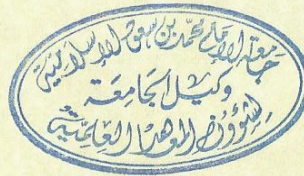 جامعة الإمام محمد بن سعود الإسلامية
وكيل الجامعة
لشؤون المعاهد العلمية